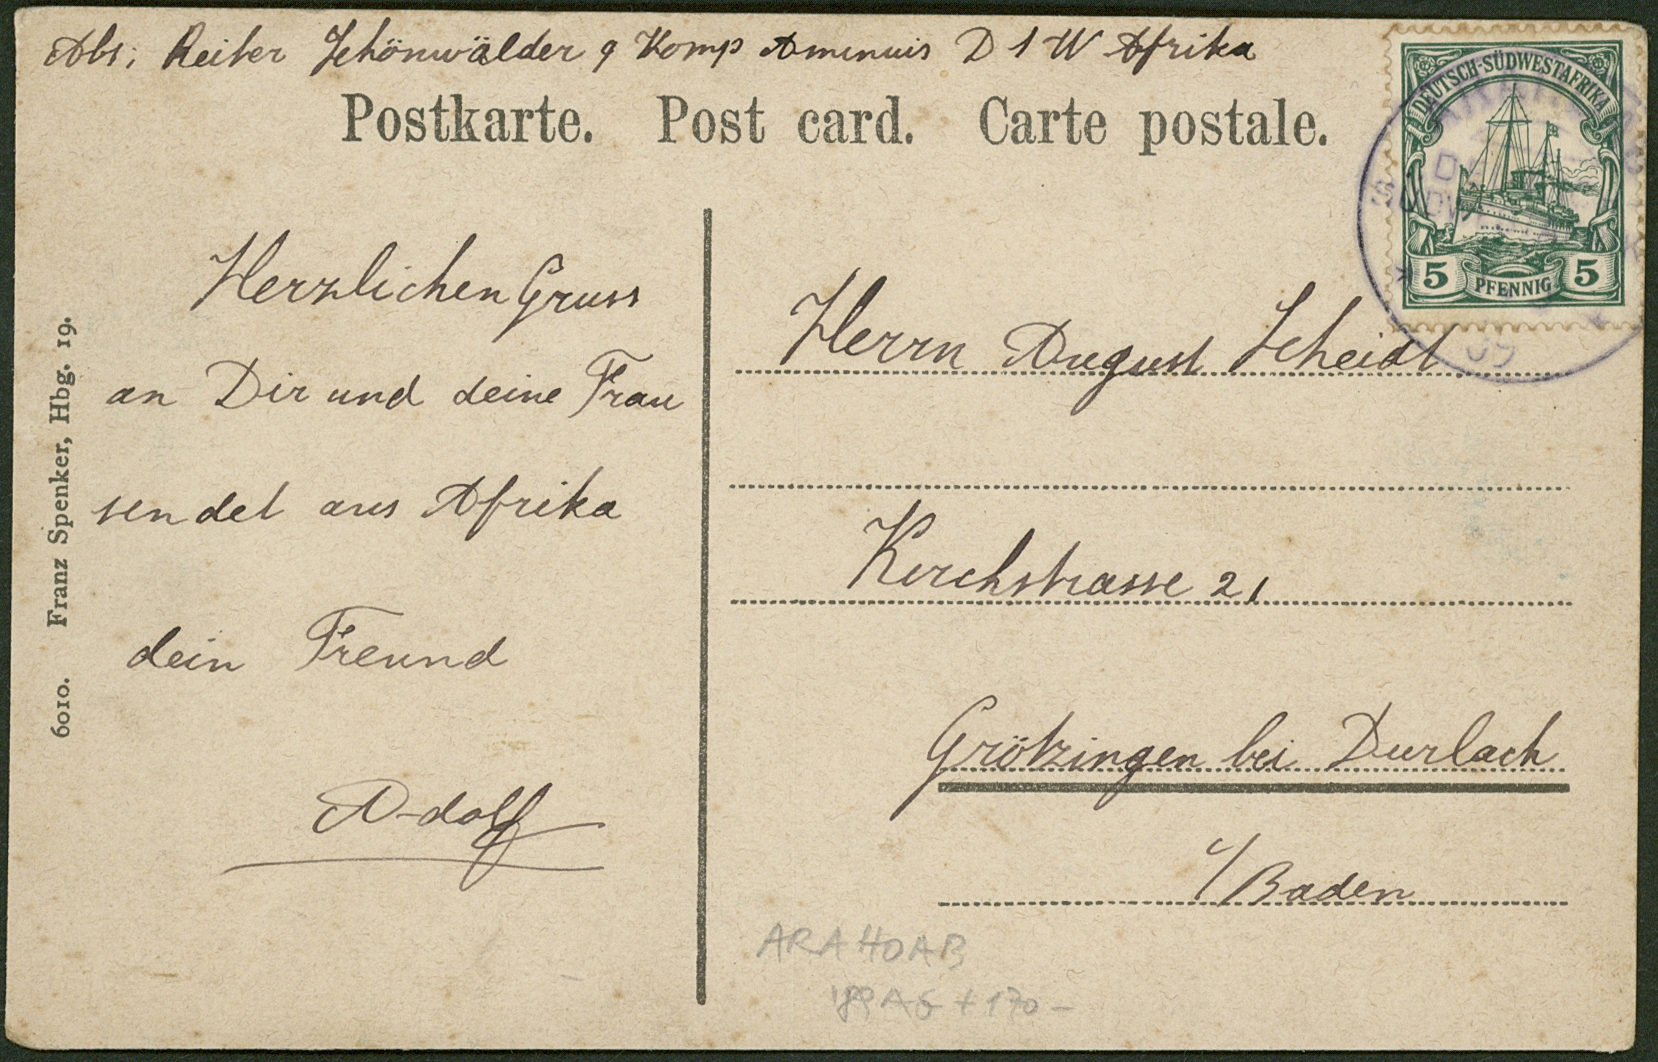 Abs; Reiter Schönwälder 9 Komp Aminuis D S W Afrika
Postkarte. Post card. Carte postale.
DEUTSCH-SÜDWESTAFRIKA
5 PFENNIG 5
Herzlichen Gruss
an Dir und deine Frau
sendet aus Afrika
dein Freund
Adolf
Herrn August Scheidt
Kirchstrasse 21
Grötzingen bei Durlach
i/Baden
6010. Franz Spenker, Hbg. 19.
ARAHOAB
+ 170 -